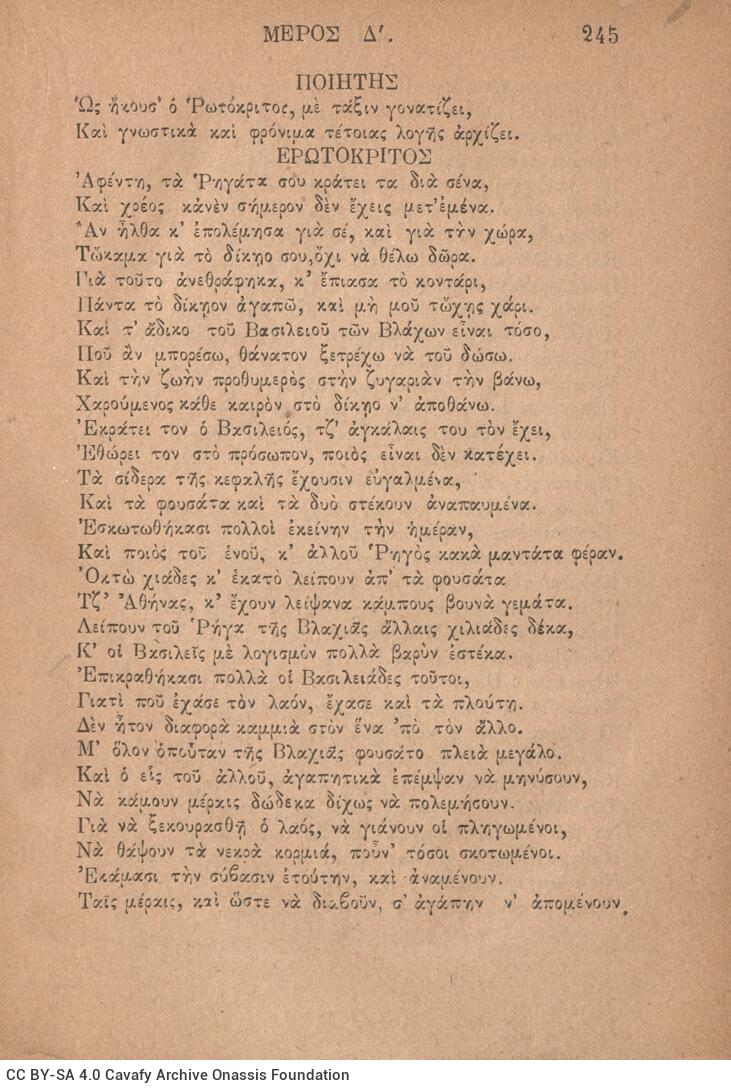 ΜΕΡΟΣ Δ'. 245
ΠΟΙΗΤΗΣ
Ὡς ἤκουσ' ὁ Ῥωτόκριτος, μὲ τάξιν γονατίζει,
Καὶ γνωστικὰ καὶ φρόνιμα τέτοιας λογῆς ἀρχίζει.
ΕΡΩΤΟΚΡΙΤΟΣ
Ἀφέντη, τὰ Ῥηγάτα σου κράτει τα διὰ σένα,
Καὶ χρέος κἀνὲν σήμερον δὲν ἔχεις μετ' ἐμένα.
Ἂν ἦλθα κ' ἐπολέμησα γιὰ σέ, καὶ γιὰ τὴν χώρα,
Τὤκαμα γιὰ τὸ δίκηο σου, ὄχι νὰ θέλω δῶρα.
Γιὰ τοῦτο ἀνεθράφηκα, κ' ἔπιασα τὸ κοντάρι,
Πάντα τὸ δίκηον ἀγαπῶ, καὶ μὴ μοῦ τὤχης χάρι.
Καὶ τ' ἄδικο τοῦ Βασιλειοῦ τῶν Βλάχων εἶναι τόσο,
Ποῦ ἂν μπορέσω, θάνατον ξετρέχω νὰ τοῦ δώσω.
Καὶ τὴν ζωὴν προθυμερὸς στὴν ζυγαριὰν τὴν βάνω,
Χαρούμενος κάθε καιρὸν στὸ δίκηο ν' ἀποθάνω.
Ἐκράτει τον ὁ Βασιλειός, τζ' ἀγκάλαις του τὸν ἔχει,
Ἐθώρει τον στὸ πρόσωπον, ποιὸς εἶναι δὲν κατέχει.
Τὰ σίδερα τῆς κεφαλῆς ἔχουσιν εὐγαλμένα,
Καὶ τὰ φουσάτα καὶ τὰ δυὸ στέκουν ἀναπαυμένα.
Ἐσκωτωθήκασι πολλοὶ ἐκείνην τὴν ἡμέραν,
Καὶ ποιὸς τοῦ ἑνοῦ, κ' ἀλλοῦ Ῥηγὸς κακὰ μαντάτα φέραν.
Ὀκτὼ χιάδες κ' ἑκατὸ λείπουν ἀπ' τὰ φουσάτα
Τζ' Ἀθήνας, κ' ἔχουν λείψανα κάμπους βουνὰ γεμάτα.
Λείπουν τοῦ Ῥήγα τῆς Βλαχιᾶς ἄλλαις χιλιάδες δέκα,
Κ' οἱ Βασιλεῖς μὲ λογισμὸν πολλὰ βαρὺν ἐστέκα.
Ἐπικραθήκασι πολλὰ οἱ Βασιλειάδες τοῦτοι,
Γιατὶ ποῦ ἐχάσε τὸν λαόν, ἔχασε καὶ τὰ πλούτη.
Δὲν ἦτον διαφορὰ καμμιὰ στὸν ἕνα 'πὸ τὸν ἄλλο.
Μ' ὅλον ὁποῦταν τῆς Βλαχιᾶς φουσάτο πλειὰ μεγάλο.
Καὶ ὁ εἷς τοῦ ἀλλοῦ, ἀγαπητικὰ ἐπέμψαν νὰ μηνύσουν,
Νὰ κάμουν μέραις δώδεκα δίχως νὰ πολεμήσουν.
Γιὰ νὰ ξεκουρασθῇ ὁ λαός, νὰ γιάνουν οἱ πληγωμένοι,
Νὰ θάψουν τὰ νεκρὰ κορμιά, ποῦν' τόσοι σκοτωμένοι.
Ἐκάμασι τὴν σύβασιν ἐτούτην, καὶ ἀναμένουν.
Ταῖς μέραις, καὶ ὥστε νὰ διαβοῦν, σ' ἀγάπην ν' ἀπομένουν.
CC BY-SA 4.0 Cavafy Archive Onassis Foundation